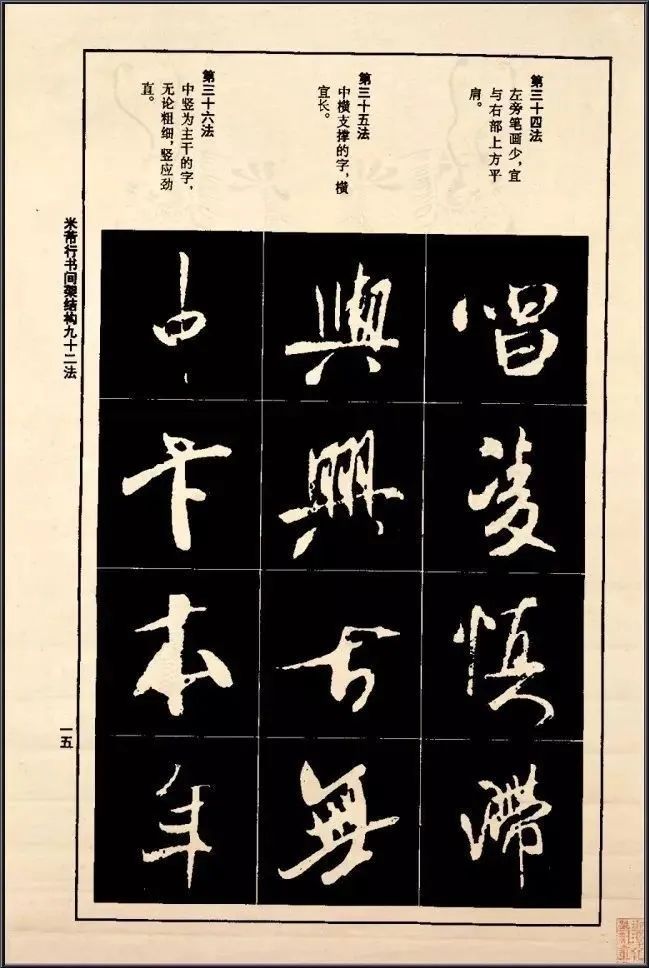 第三十四法
左旁笔画少，宜
与右部上方平
肩。
唱
凌
慎
滞
第三十五法
中横支撑的字，横
宜长。
與
興
方
無
第三十六法
中竖为主干的字，
无论粗细，竖应劲
直。
中
卞
本
年
米芾行书间架结构九十二法
一五